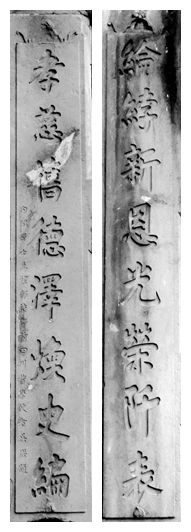 綸綍新恩光榮阡表
孝慈舊德澤煥史編